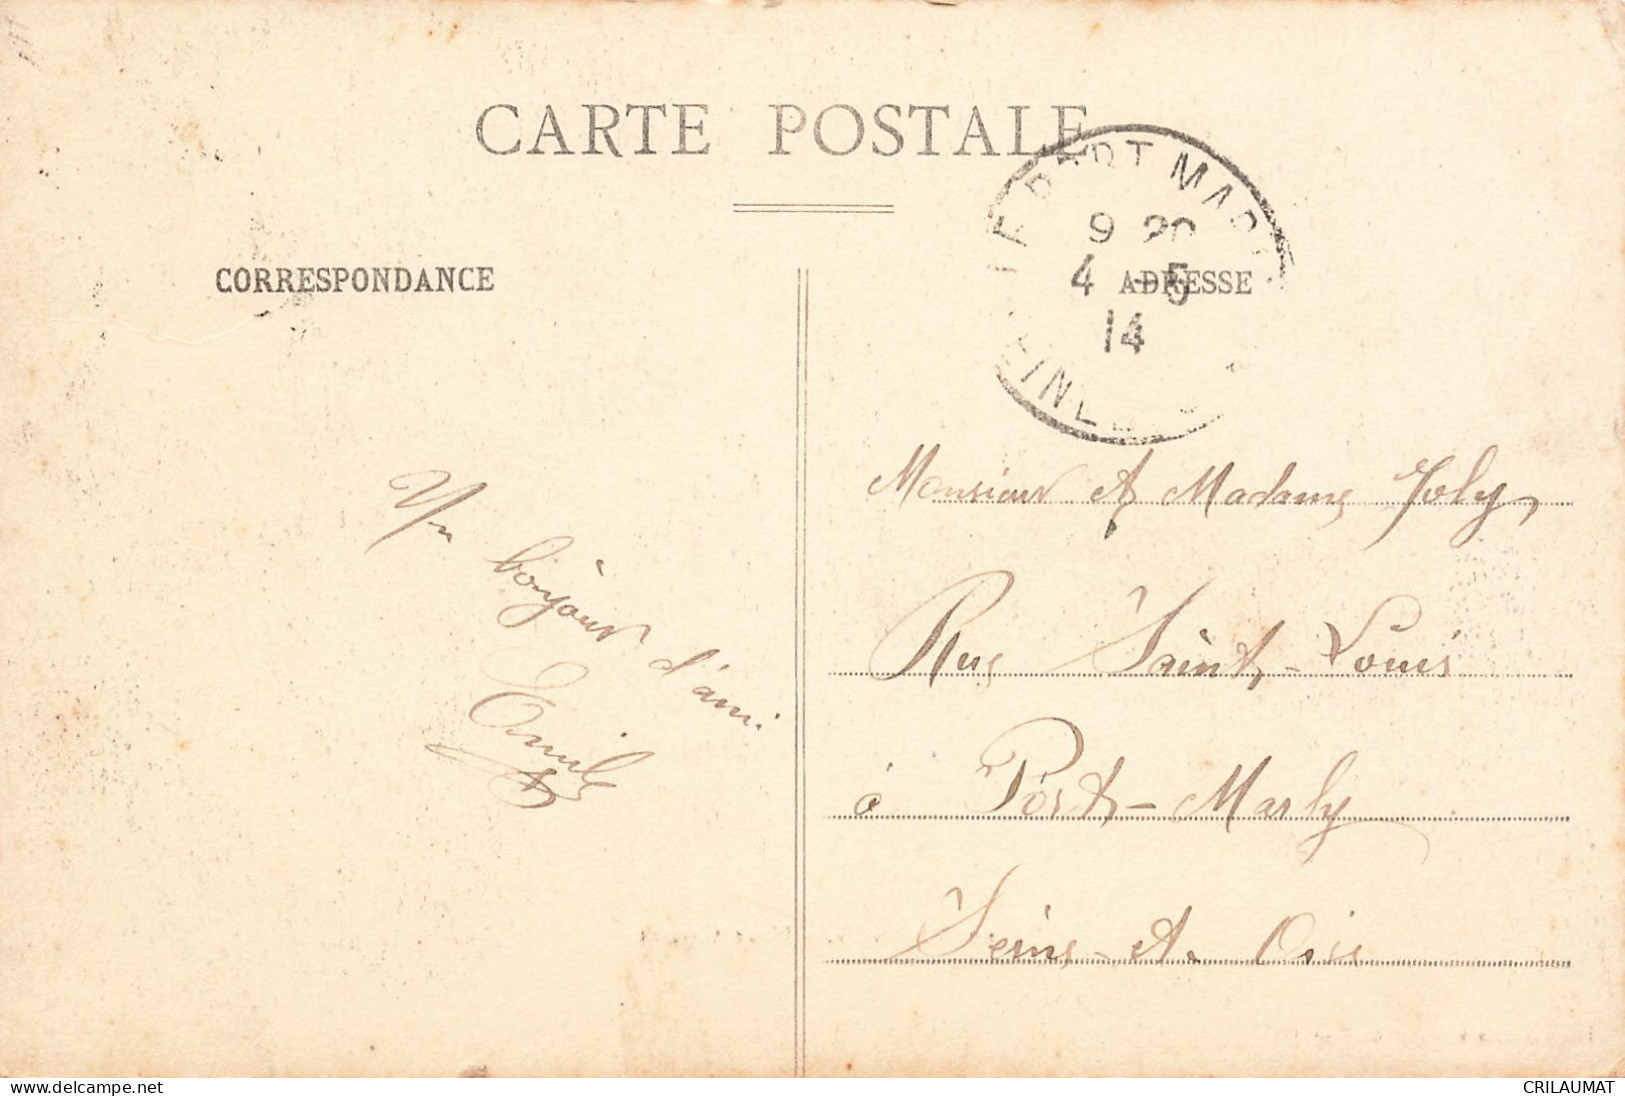 CARTE POSTALE
CORRESPONDANCE
ADRESSE
LE PORT MARLY
9 20
4 -5
14
Un bonjour d'ami.
Emile
Monsieur et Madame Joly
Rue Saint-Louis
à Port-Marly
Seine-et-Oise
www.delcampe.net
CRILAUMAT